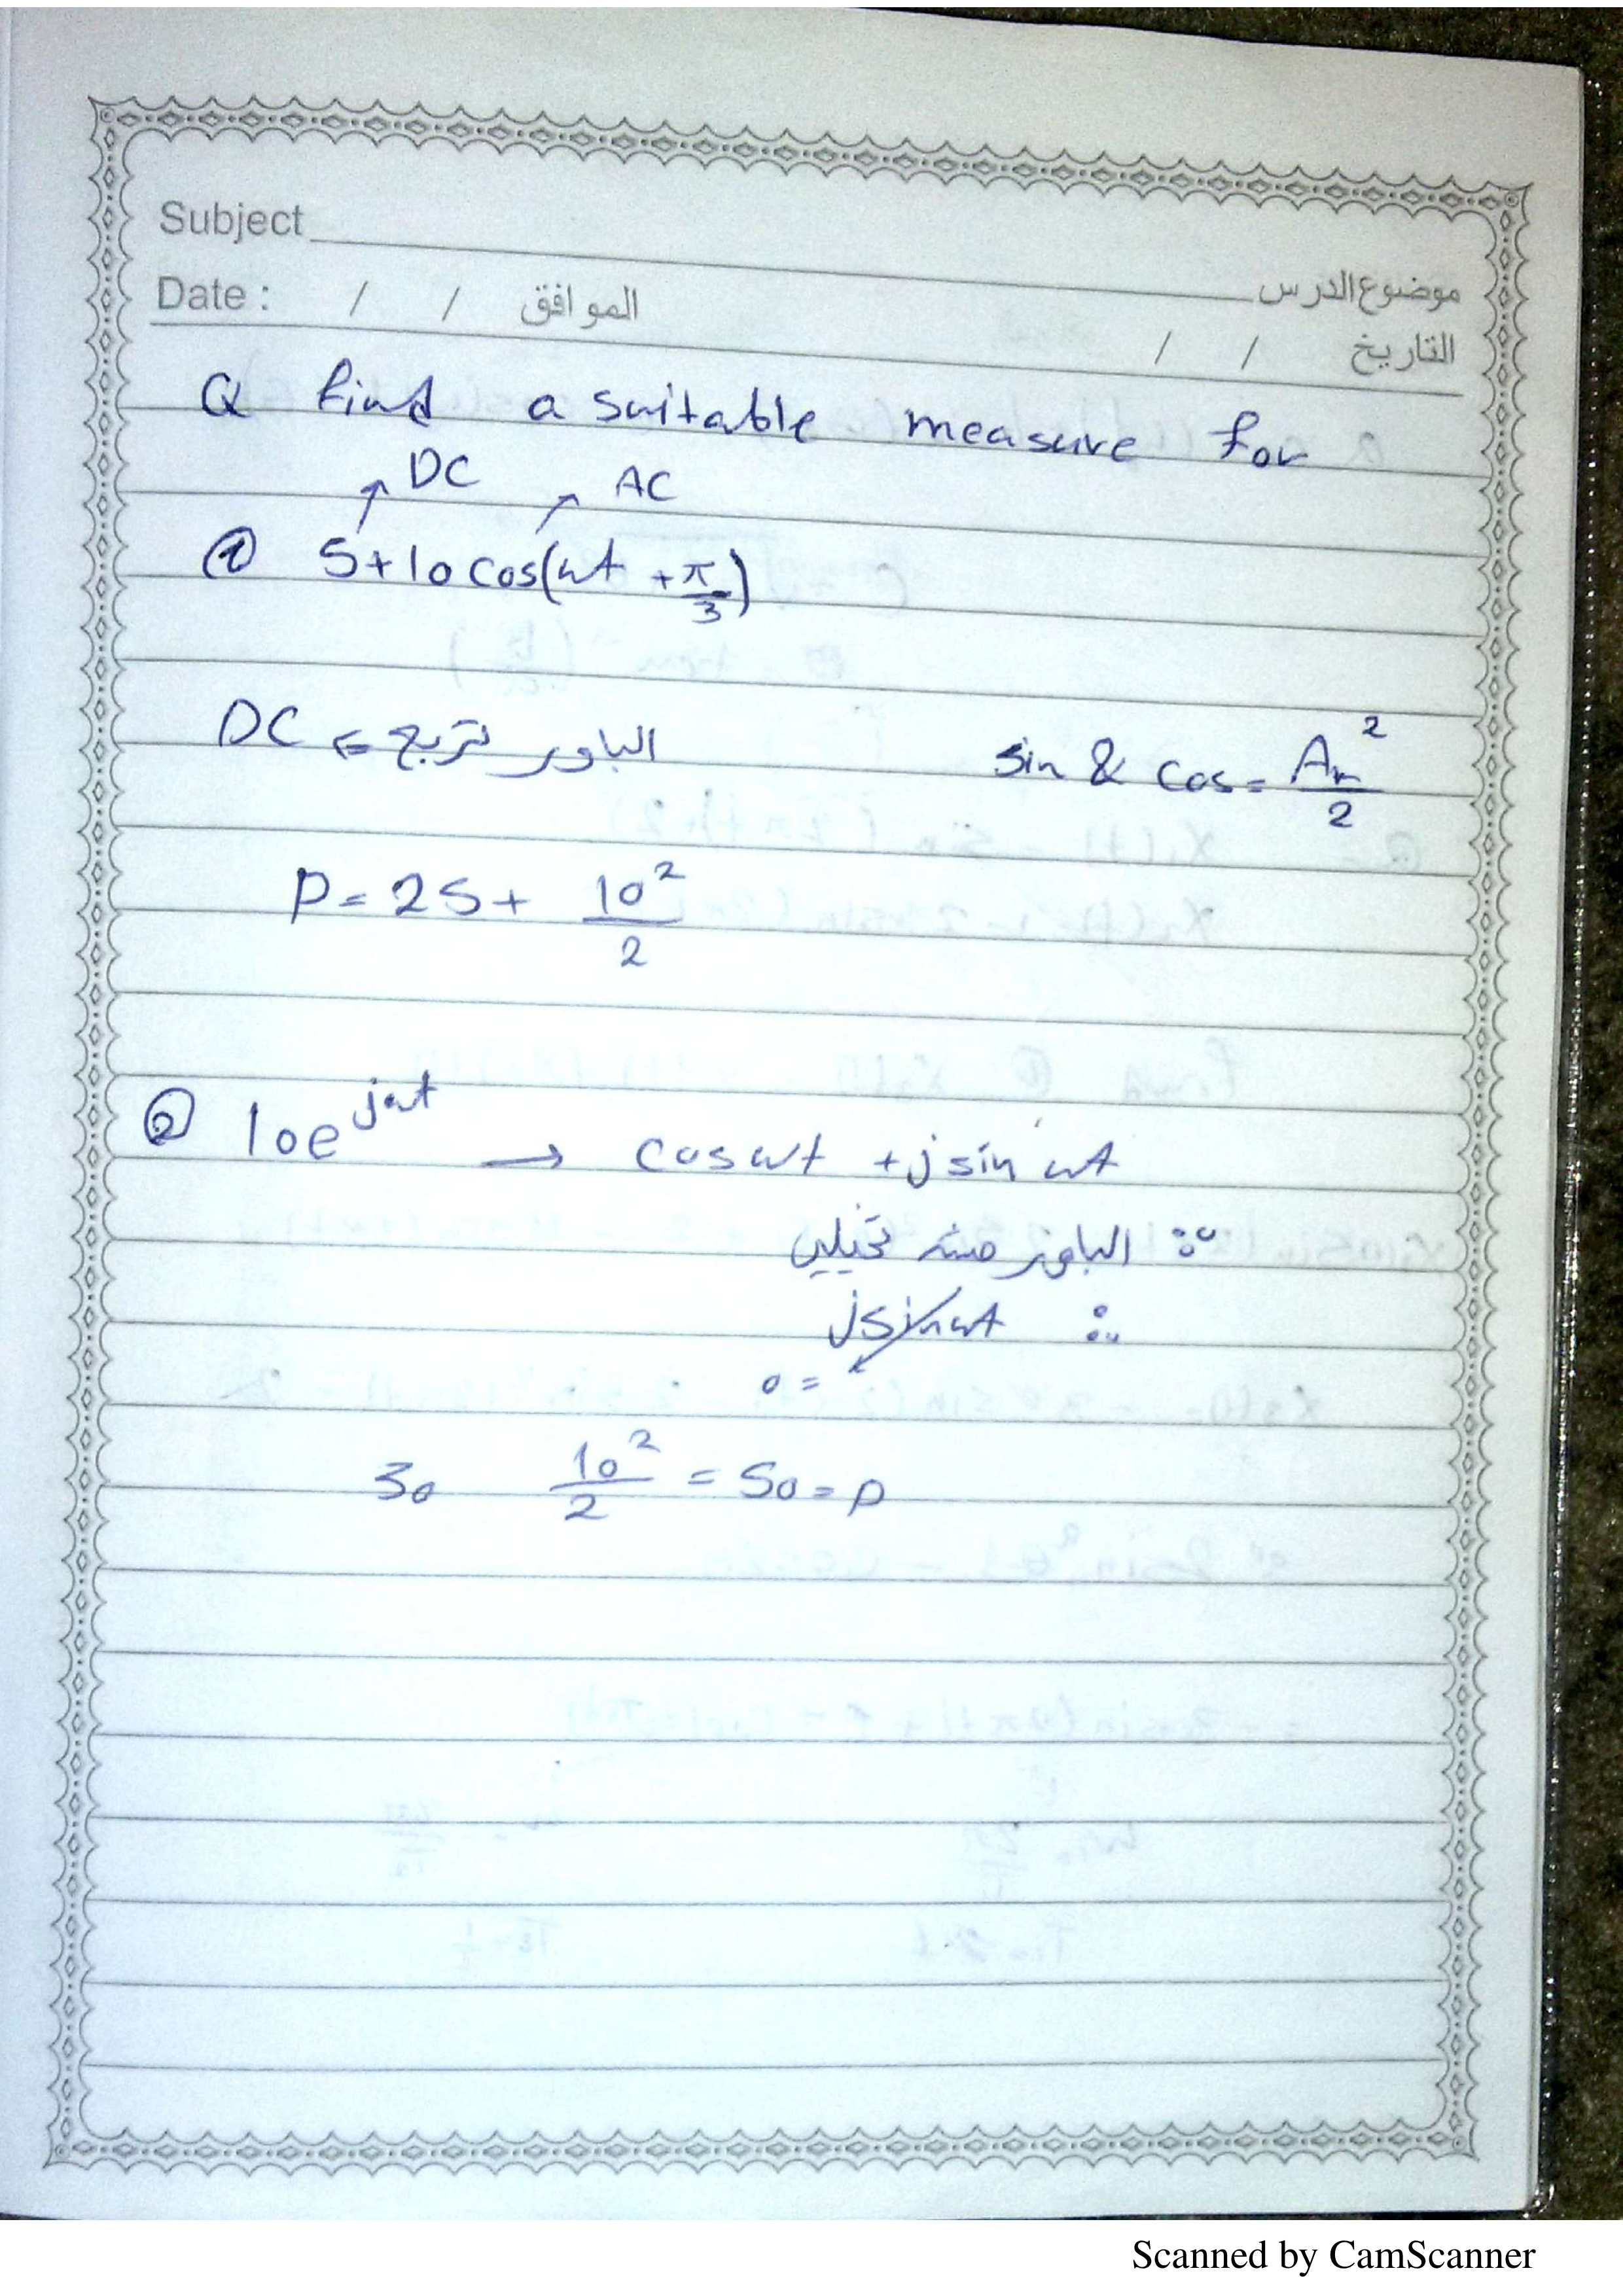 Subject موضوع الدرس
Date : / / الموافق / / التاريخ
Q find a suitable measure for
DC AC
① 5+10 cos(ωt + π/3)
DC ⇐ الباور تربع sin & cos = Am²/2
P = 25 + 10²/2
② 10e^jωt → cos ωt + j sin ωt
∵ الباور مش تخيلي
∴ j sin ωt
0 =
So 10²/2 = 50 = P
Scanned by CamScanner